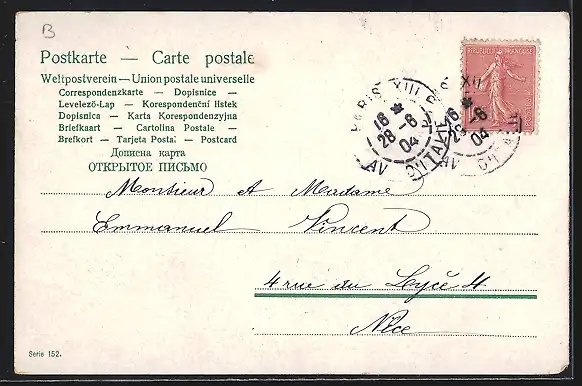 B
Postkarte — Carte postale
Weltpostverein — Union postale universelle
Correspondenzkarte — Dopisnice -
Levelező-Lap — Korespondenční lístek
Dopisnica — Karta Korespondenzyjna
Briefkaart — Cartolina Postale —
Brefkort — Tarjeta Postal — Postcard
Дописна карта
ОТКРЫТОЕ ПИСЬМО
REPUBLIQUE FRANÇAISE
PARIS XIII
16
28 - 6
04
AV D'ITALIE
PARIS XIII
16
28 - 6
04
AV D'ITALIE
Monsieur et Madame
Emmanuel Vincent
4 rue du Lycée 4
Nice
Serie 152.